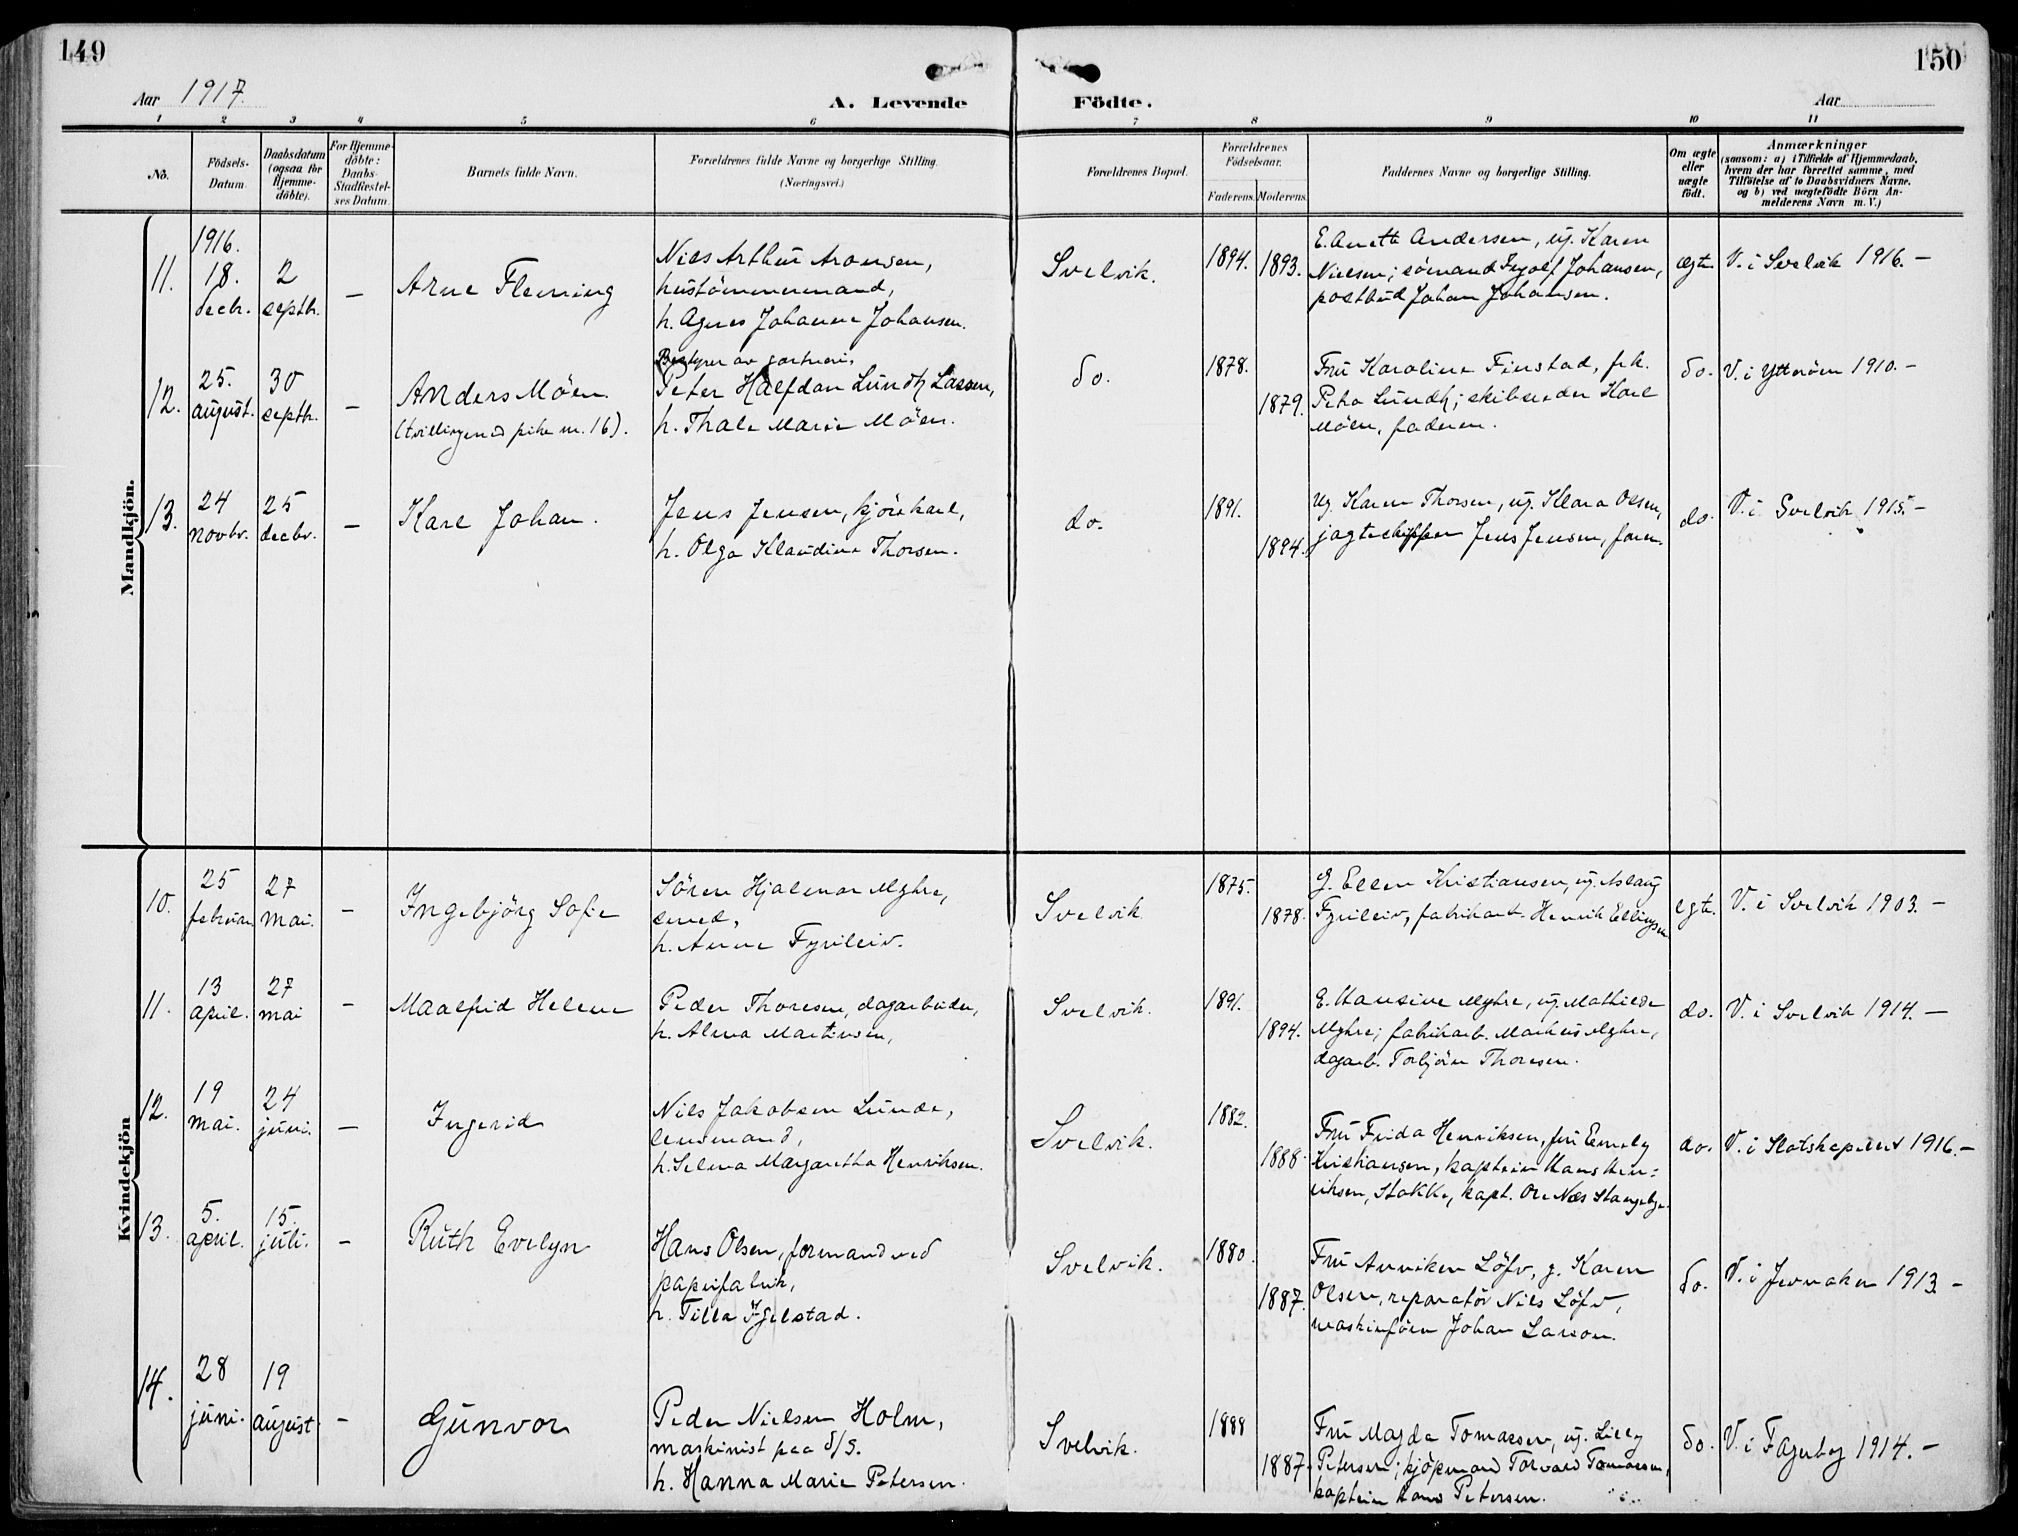 149
150
Aar 1917.
A. Levende
Födte.
Aar
1 2 3 4 5 6 7 8 9 10 11
No.
Födsels-
Datum.
Daabsdatum
(ogsaa for
Hjemme-
döbte).
For Hjemme-
döbte:
Daabs-
Stadfæstel-
ses Datum.
Barnets fulde Navn.
Forældrenes fulde Navne og borgerlige Stilling.
(Næringsvei.)
Forældrenes Bopæl.
Forældrenes
Födselsaar.
Faderens. Moderens.
Faddernes Navne og borgerlige Stilling.
Om ægte
eller
uægte
födt.
Anmærkninger
(saasom: a) i Tilfælde af Hjemmedaab,
hvem der har forrettet samme, med
Tilföielse af to Daabsvidners Navne,
og b) ved uægtefödte Börn An-
melderens Navn m. V.)
Mandkjön.
11.
1916.
18.
decbr.
2
septbr.
—
Arne Fleming
Niels Arthur Aronsen,
hustömmermand,
h. Agnes Johanne Johansen.
Svelvik.
1894.
1893.
E. Anette Andersen, ug. Karen
Nielsen; sömand Ingolf Johansen,
postbud Johan Johansen.
ægte.
V. i Svelvik 1916. —
12.
25.
august.
30
septbr.
—
Anders Möen.
(tvilling med pike nr. 16).
Bestyrer av gartneri,
Peter Halfdan Lundh Lassen,
h. Thale Marie Möen.
do.
1878.
1879.
Fru Karoline Finstad, frk.
Petra Lundh; skibsreder Karl
Möen, faderen.
do.
V. i Ytteröen 1910. —
13.
24
novbr.
25
decbr.
—
Karl Johan.
Jens Jensen, kjörekarl,
h. Olga Klaudine Thorsen.
do.
1891.
1894.
Ug. Karen Thorsen, ug. Klara Olsen,
jagteskipper Jens Jensen, faren.
do.
V. i Svelvik 1915. —
Kvindekjön
10.
25
februar
27
mai.
—
Ingebjörg Sofie
Sören Hjalmar Myhre,
smed,
h. Anne Fyrileiv.
Svelvik
1875.
1878.
G. Ellen Kristiansen, ug. Aslaug
Fyrileiv, fabrikarb. Henrik Ellingsen
egte.
V. i Svelvik 1903. —
11.
13
april.
27
mai
—
Maalfrid Helene
Peder Thoresen, dagarbeider,
h. Alma Martinsen,
Svelvik.
1891.
1894.
E. Hansine Myhre, ug. Mathilde
Myhre; fabrikarb. Markus Myhre,
dagarb. Torbjörn Thoresen.
do.
V. i Svelvik 1914. —
12.
19
mai.
24
juni.
—
Ingerid
Nils Jakobsen Lunde,
lensmand,
h. Selma Margaretha Henriksen.
Svelvik.
1882.
1888.
Fru Frida Henriksen, fru Emely
Kristiansen, kaptein Hans Hen-
riksen, Stokke, kapt. Ole Næs Slangeby.
do.
V. i Slotskapellet 1916. —
13.
5.
april.
15.
juli.
—
Ruth Evelyn
Hans Olsen, formand ved
papirfabrik,
h. Tilla Igelstad.
Svelvik.
1880.
1887.
Fru Anniken Löfv, g. Karen
Olsen, reparatör Nils Löfv,
maskinförer Johan Larson.
do.
V. i Jevnaker 1913. —
14.
28
juni.
19
august
—
Gunvor
Peder Nielsen Holm,
maskinist paa d/s.
h. Hanna Marie Petersen.
Svelvik.
1888
1887.
Fru Magda Tomassen, ug. Lilly
Petersen; kjöpmand Torvald Tomassen,
kaptein Hans Petersen.
do.
V. i Fagerborg 1914. —